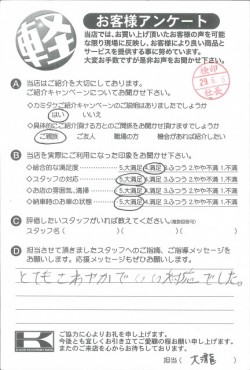 軽
お客様アンケート
当店では、お買い上げ頂いたお客様の声を可能な限り現場に反映し、お客様により良い商品とサービスを提供する事に努めています。
大変お手数ですが是非お声をお聞かせ下さい。
A 当店はご紹介を大切にしております。
ご紹介キャンペーンについてお聞かせ下さい。
◇カミタケご紹介キャンペーンのご説明はありましたでしょうか
はい いいえ
◇具体的にご紹介頂ける方とのご関係をお聞かせ頂けますでしょうか
ご親族 ご友人 職場の方 機会があれば紹介したい
B 当店を実際にご利用になった印象をお聞かせ下さい。
◇総合的な満足度 5.大満足 4.満足 3.ふつう 2.やや不満 1.不満
◇スタッフの対応 5.大満足 4.満足 3.ふつう 2.やや不満 1.不満
◇お店の雰囲気、清掃 5.大満足 4.満足 3.ふつう 2.やや不満 1.不満
◇納車時のお車の状態 5.大満足 4.満足 3.ふつう 2.やや不満 1.不満
C 評価したいスタッフがいれば教えてください。(複数回答可)
スタッフ名 ( ) ( ) ( )
D 担当させて頂きましたスタッフへのご指摘、ご指導メッセージをお願いします。応援メッセージもぜひお願いします。
とてもさわやかでいい対応でした。
K
ご協力に心よりお礼を申し上げます。
今後とも宜しくお引き立てご愛顧の程お願い申し上げます。
またのご来店を心からお待ちしております。
担当( )